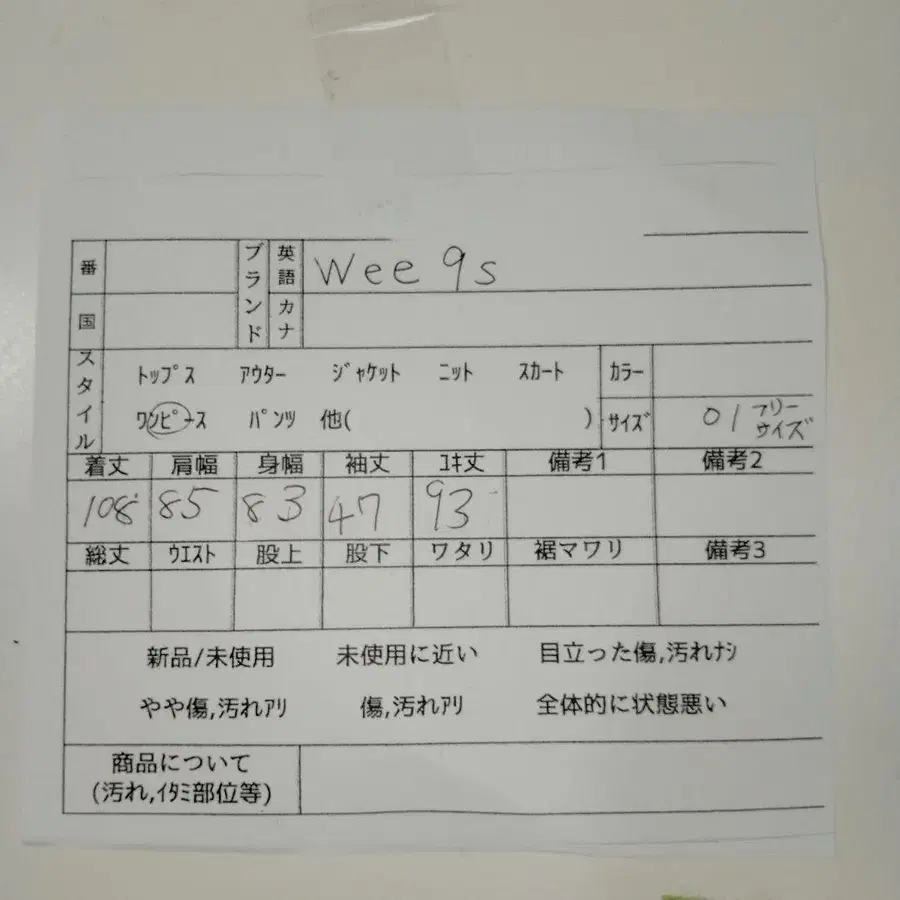 番 ブランド 英語 Wee 9s
国 カナ
スタイル トップス アウター ジャケット ニット スカート カラー
ワンピース パンツ 他( ) サイズ 01 フリーサイズ
着丈 肩幅 身幅 袖丈 ユキ丈 備考1 備考2
108 85 83 47 93
総丈 ウエスト 股上 股下 ワタリ 裾マワリ 備考3
新品/未使用 未使用に近い 目立った傷,汚れナシ
やや傷,汚れアリ 傷,汚れアリ 全体的に状態悪い
商品について
(汚れ,イタミ部位等)